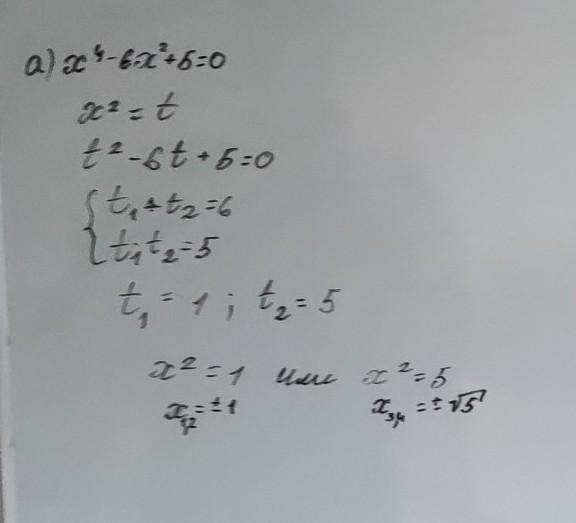 а) x⁴-6x²+5=0
x² = t
t² - 6t + 5 = 0
{ t₁ + t₂ = 6
t₁ t₂ = 5
t₁ = 1 ; t₂ = 5
x² = 1 или x² = 5
x₁,₂ = ± 1 x₃,₄ = ± √5